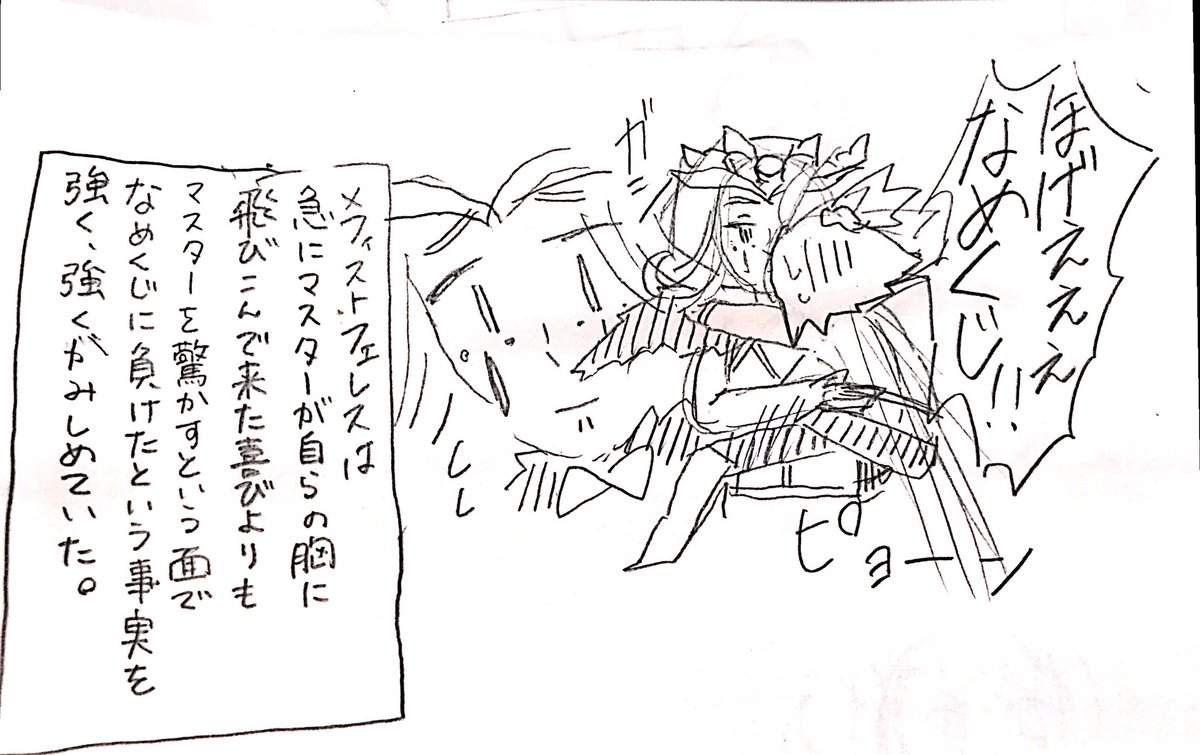 ほげえぇぇぇ
なめくじ!!
ガ
ピョーン
メフィストフェレスは
急にマスターが自らの胸に
飛びこんで来た喜びよりも
マスターを驚かすという面で
なめくじに負けたという事実を
強く、強くがみしめていた。